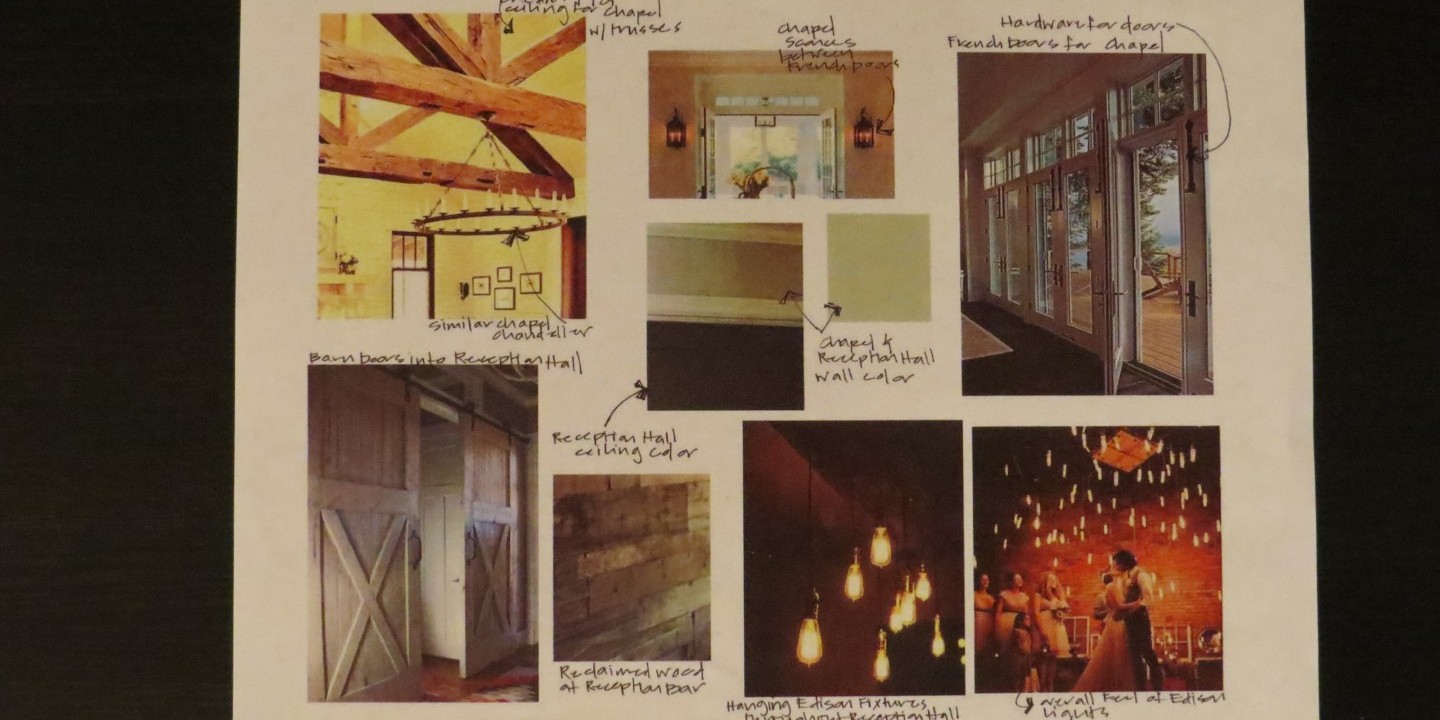 ceiling for Chapel
w/ trusses
Chapel
Sconces
between
French Doors
Hardware for doors
French Doors for Chapel
Similar chapel
chandelier
Chapel &
Reception Hall
wall color
Barn Doors into Reception Hall
Reception Hall
ceiling color
Reclaimed wood
at Reception Bar
Hanging Edison Fixtures
throughout Reception Hall
overall Feel of Edison
Lights